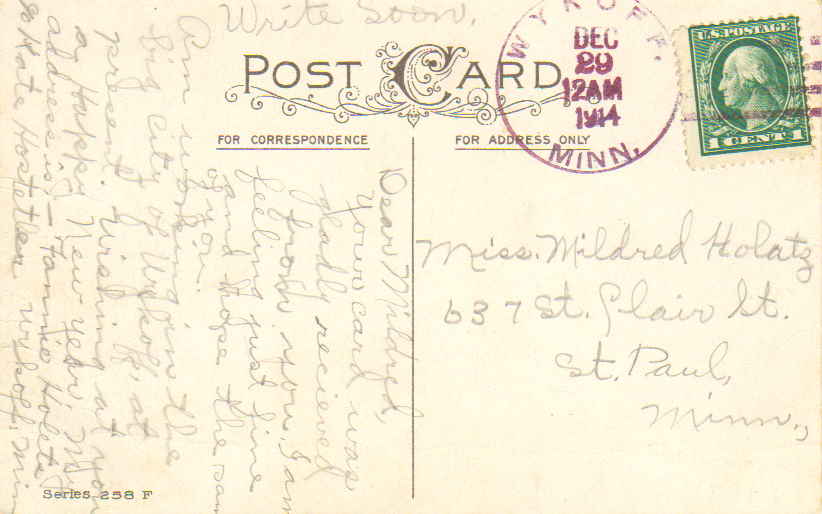 Write Soon.
POST CARD
FOR CORRESPONDENCE
FOR ADDRESS ONLY
WYKOFF.
DEC
29
12AM
1914
MINN.
U.S. POSTAGE
1 CENT 1
Dear Mildred,
Your card was
gladly recieved
from you. I am
feeling just fine
and hope the same
of you.
Am working in the
big city of Wykoff, at
present. Wishing you
a Happy New year. My
address is - Fannie Holatz
% Kate Hostetler Wykoff, Minn
Miss. Mildred Holatz
637 St. Clair St.
St. Paul,
Minn.,
Series 258 F